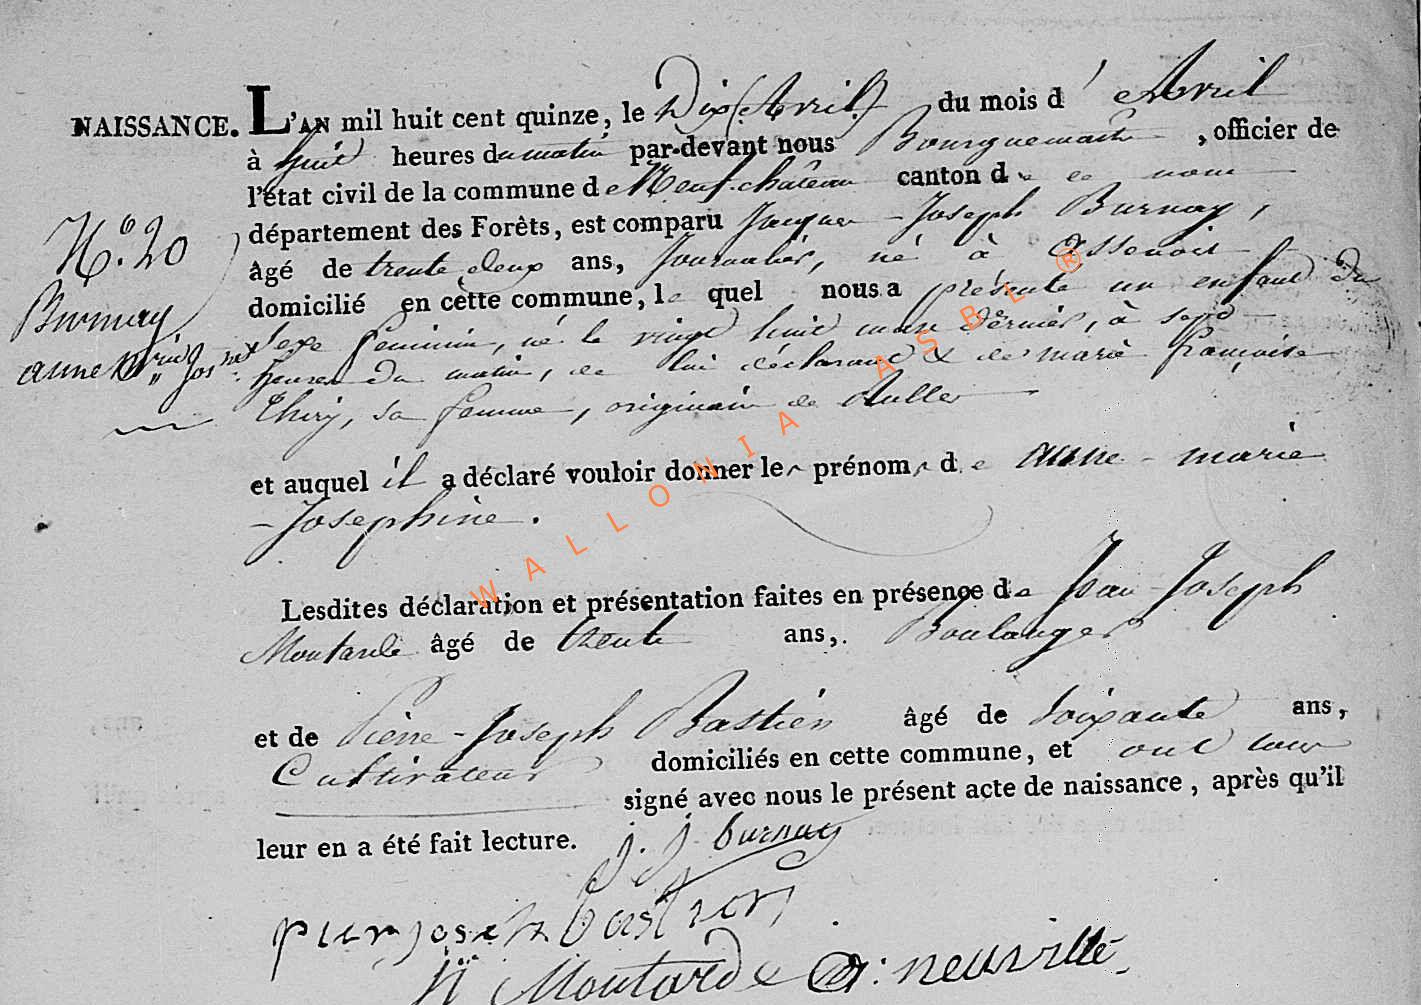 NAISSANCE. L'AN mil huit cent quinze, le Dix (Avril) du mois d' Avril
à huit heures du matin par-devant nous Bourguemaitre, officier de
l'état civil de la commune de Neufchâteau canton de ce nom
département des Forêts, est comparu Jacques-Joseph Burnay,
âgé de trente deux ans, Journalier, né à Assenois
domicilié en cette commune, lequel nous a présenté un enfant du
sexe féminin, né le vingt huit mars dernier, à sept
heures du matin, de lui déclarant & de marie françoise
Thiry, sa femme, originaire de Rulles
et auquel il a déclaré vouloir donner les prénoms de anne-marie
-Josephine.
Lesdites déclaration et présentation faites en présence de Jean-Joseph
Moutarde âgé de trente ans, Boulanger
et de Piérre-Joseph Bastien âgé de soixante ans,
Cultivateur domiciliés en cette commune, et ont tous
signé avec nous le présent acte de naissance, après qu'il
leur en a été fait lecture. j. j. burnay
N.º 20
Burnay
anne Mrie Josne
pierr joseh bastien
Moutarde neuville
WALLONIA ASBL ®